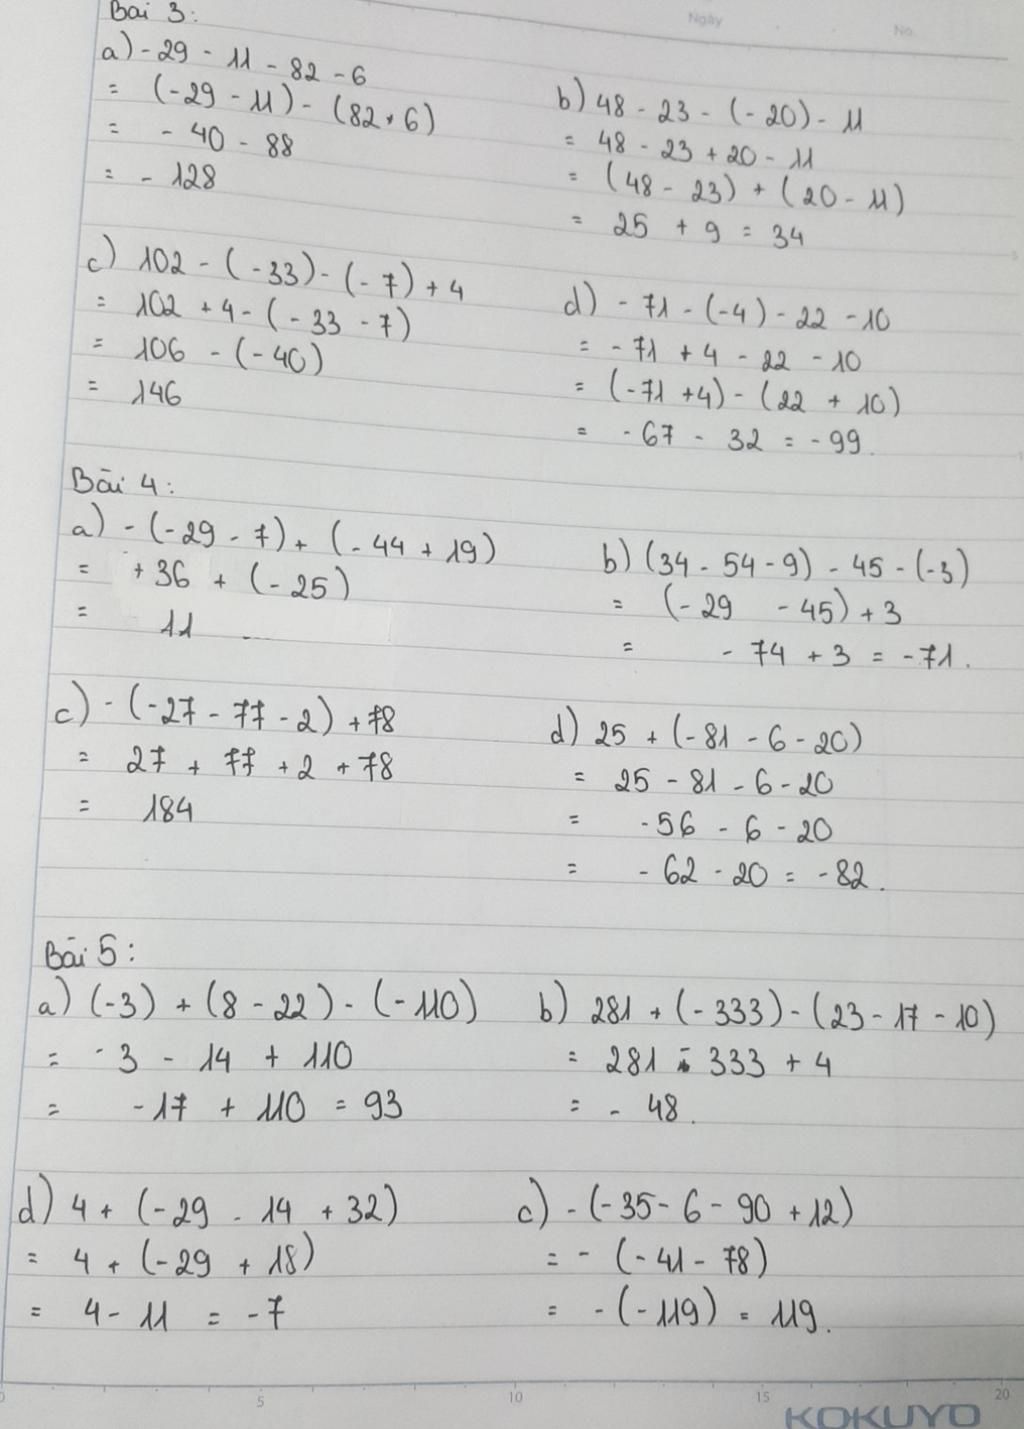 Ngày
No.
Bài 3:
a) - 29 - 11 - 82 - 6
= (-29 - 11) - (82 + 6)
= - 40 - 88
= - 128
b) 48 - 23 - (- 20) - 11
= 48 - 23 + 20 - 11
= (48 - 23) + (20 - 11)
= 25 + 9 = 34
c) 102 - (-33) - (-7) + 4
= 102 + 4 - (-33 - 7)
= 106 - (-40)
= 146
d) - 71 - (-4) - 22 - 10
= - 71 + 4 - 22 - 10
= (-71 + 4) - (22 + 10)
= - 67 - 32 = - 99.
Bài 4:
a) - (-29 - 7) + (- 44 + 19)
= + 36 + (- 25)
= 11
b) (34 - 54 - 9) - 45 - (-3)
= (- 29 - 45) + 3
= - 74 + 3 = - 71.
c) - (-27 - 77 - 2) + 78
= 27 + 77 + 2 + 78
= 184
d) 25 + (- 81 - 6 - 20)
= 25 - 81 - 6 - 20
= - 56 - 6 - 20
= - 62 - 20 = - 82.
Bài 5:
a) (-3) + (8 - 22) - (- 110)
= - 3 - 14 + 110
= - 17 + 110 = 93
b) 281 + (- 333) - (23 - 17 - 10)
= 281 - 333 + 4
= - 48.
d) 4 + (-29 - 14 + 32)
= 4 + (-29 + 18)
= 4 - 11 = - 7
c) - (-35 - 6 - 90 + 12)
= - (- 41 - 78)
= - (- 119) = 119.
0 5 10 15 20
KOKUYO